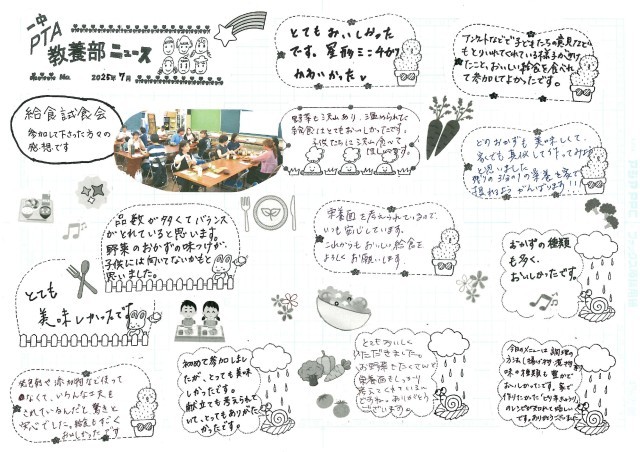 一中
PTA
教養部ニュース
No.
2025年7月
給食試食会
参加して下さった方々の
感想です
とてもおいしかった
です。星形ミンチカツ
かわいかった
アンケートなどで子どもたちの意見なども
とりいれている様子が
たこと、おいしい給食を食べれて
参加してよかったです。
野菜も沢山あり、温められた
給食はとてもおいしかったです。
子供たちには沢山食べて
ほしいです。
どのおかずも美味しくて、
家でも真似して作ってみよう
と思いました
残りの 栄養を家で
がんばります!!!
品数が多くてバランス
がとれていると思います。
野菜のおかずの味つけが、
子供には向いてないかもと
思いました。
栄養面を考えられているので、
いつも安心しています。
これからもおいしい給食を
よろしくお願いします
おかずの種類
も多く、
おいしかったです。
とても
美味しかったです
着色料や添加物など使って
なくて、いろんな工夫を
されているんだと驚きと
安心でした。給食もすごく
おいしかったです
初めて参加しまし
たが、とても美味
しかったです。
献立も考えられて
いて、とてもありがた
かったです。
とてもおいしく
いただきました。
お野菜もたくさんで
栄養面もしっかり
考えてくれているん
ですね。ありがとう
ございます。
今日のメニューは調理の
方法(揚げ物、漬物
味の種類も豊かで
おいしかったです。家で
作りたかった
のレシピが知れて嬉しい
です。ありがとうございました